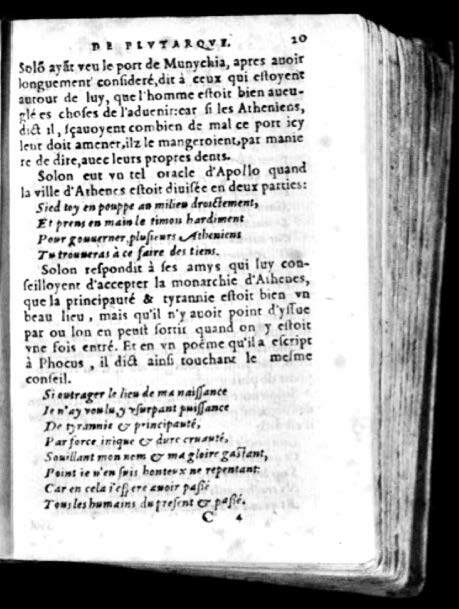 DE PLVTARQVE. 20
Solõ ayãt veu le port de Munychia, apres auoir
longuement consideré,dit à ceux qui estoyent
autour de luy, que l'homme estoit bien aueu-
glé es choses de l'aduenir:car si les Atheniens,
dict il, sçauoyent combien de mal ce port icy
leur doit amener,ilz le mangeroient,par manie
re de dire,auec leurs propres dents.
Solon eut vn tel oracle d'Apollo quand
la ville d'Athenes estoit diuisée en deux parties:
Sied toy en pouppe au milieu droictement,
Et prens en main le timon hardiment
Pour gouuerner,plusieurs Atheniens
Tu trouueras à ce faire des tiens.
Solon respondit à ses amys qui luy con-
seilloyent d'accepter la monarchie d'Athenes,
que la principauté & tyrannie estoit bien vn
beau lieu , mais qu'il n'y auoit point d'yssue
par ou lon en peust sortir quand on y estoit
vne fois entré. Et en vn poëme qu'il a escript
à Phocus , il dict ainsi touchant le mesme
conseil.
Si outrager le lieu de ma naissance
Ie n'ay voulu,y vsurpant puissance
De tyrannie & principauté,
Par force inique & dure cruauté,
Souillant mon nom & ma gloire gastant,
Point ie n'en suis honteux ne repentant:
Car en cela i'espere auoir passé
Tous les humains du present & passé.
C 4